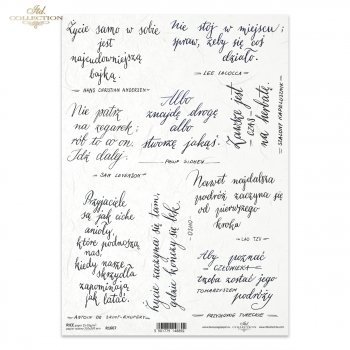 itd.
COLLECTION
Życie samo w sobie
jest
najcudowniejszą
bajką.
HANS CHRISTIAN ANDERSEN
Nie stój w miejscu;
spraw, żeby się coś
działo.
LEE IACOCCA
Nie patrz
na zegarek;
rób to co on.
Idź dalej.
SAM LEVENSON
Albo
znajdę drogę
albo
stworzę jakąś.
PHILIP SIDNEY
Zawsze jest
czas
na herbatę.
SZALONY KAPELUSZNIK
Przyjaciele
są jak ciche
anioły,
które podnoszą
nas,
kiedy nasze
skrzydła
zapominają
jak latać.
ANTOINE DE SAINT-EXUPERY
Życie zaczyna się tam,
gdzie kończy się lęk.
OSHO
Nawet najdalsza
podróż zaczyna się
od pierwszego
kroku
LAO TZU
Aby poznać
CZŁOWIEKA
trzeba zostać jego
TOWARZYSZEM
podróży
PRZYSŁOWIE TURECKIE
RICE
R1667